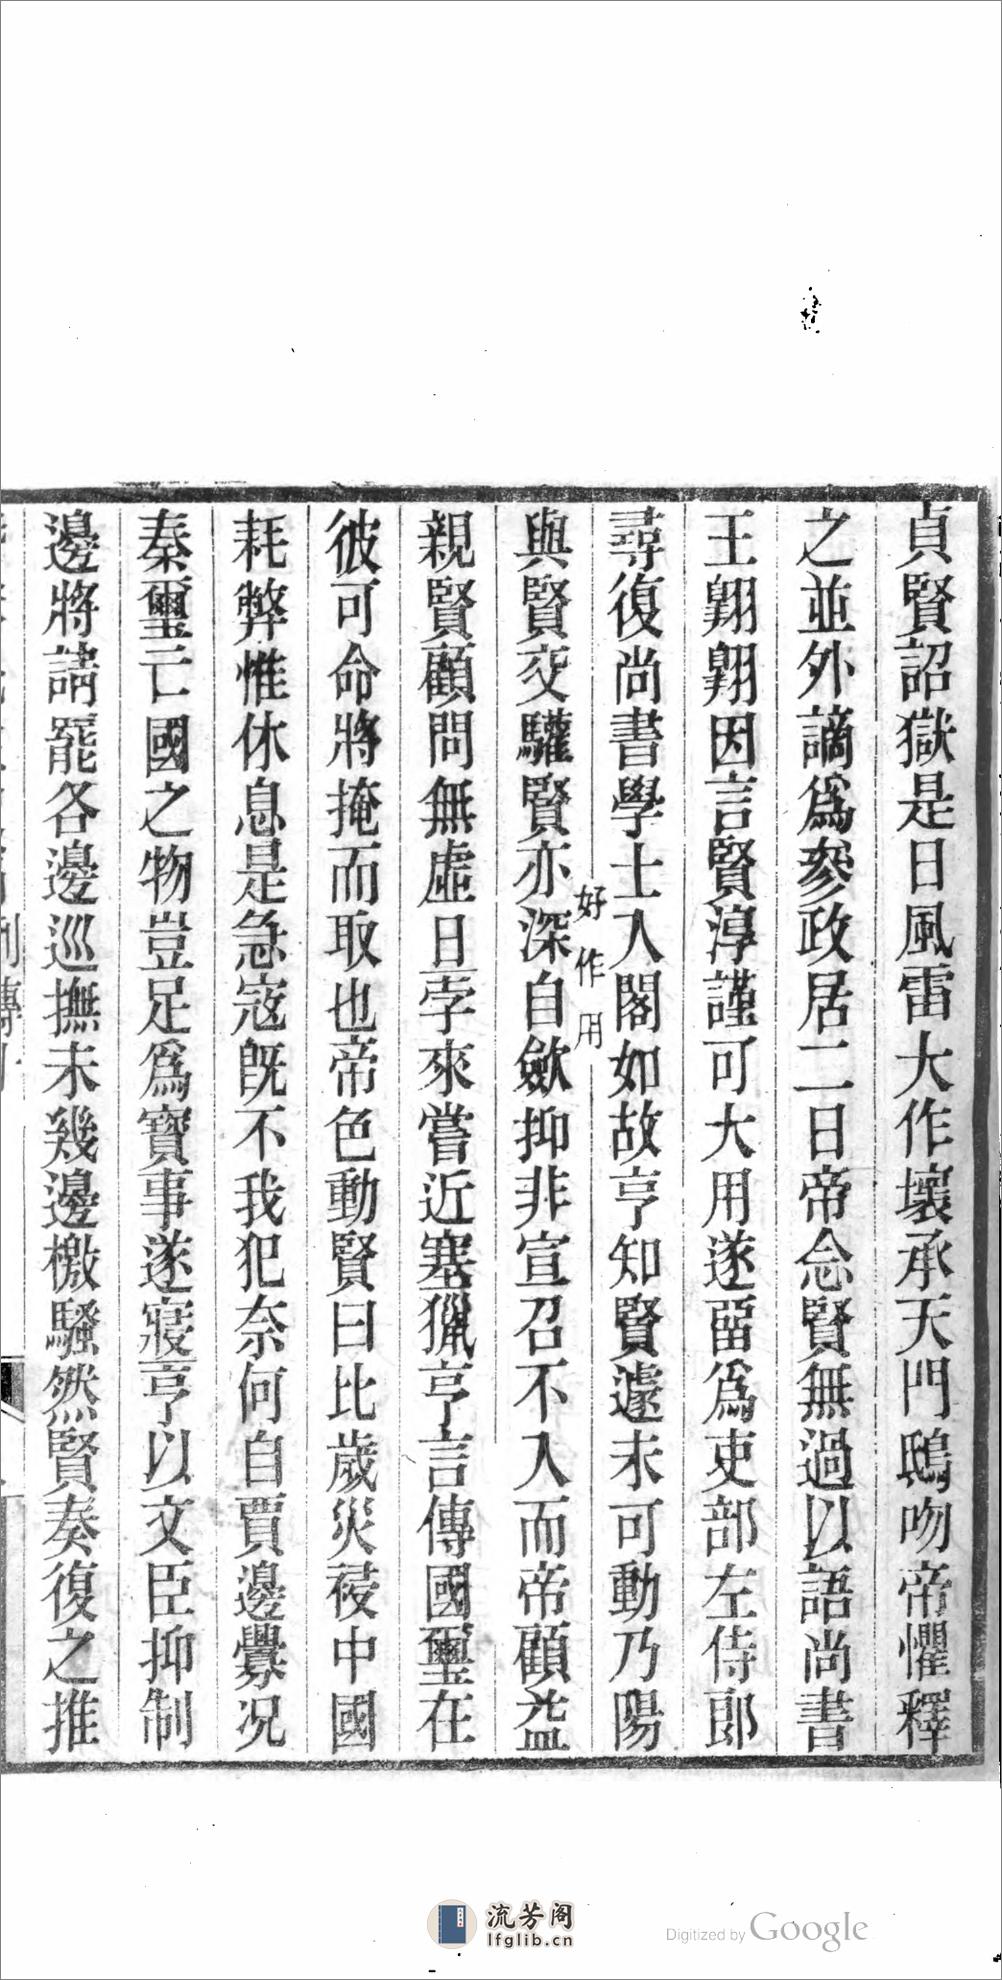 貞賢詔獄是日風雷大作壞承天門鴟吻帝懼釋
之並外謫爲參政居二日帝念賢無過以語尚書
王翺翺因言賢淳謹可大用遂畱爲吏部左侍郎
尋復尚書學士入閣如故亨知賢遽未可動乃陽
好作用
與賢交驩賢亦深自歛抑非宣召不入而帝顧益
親賢顧問無虛日孛來嘗近塞獵亨言傳國璽在
彼可命將掩而取也帝色動賢曰比歲災祲中國
耗弊惟休息是急寇既不我犯奈何自賈邊釁况
秦璽亡國之物豈足爲寶事遂寢亨以文臣抑制
邊將請罷各邊巡撫未幾邊檄騷然賢奏復之推
流芳阁
lfglib.cn
Digitized by Google